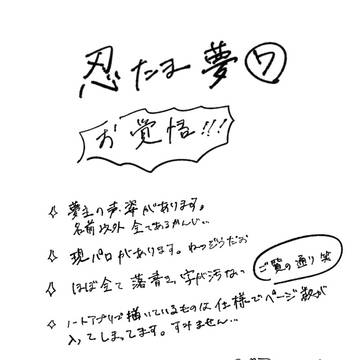 忍たま夢⑦
お覚悟!!!
夢主の声・姿があります。
名前以外全てあるかんじ…
現パロがあります。ねつぞうだお
ほぼ全て落書き、字が汚ない
ご覧の通り笑
ノートアプリで描いているものは仕様でページ数が
入ってしまってます。すみません…